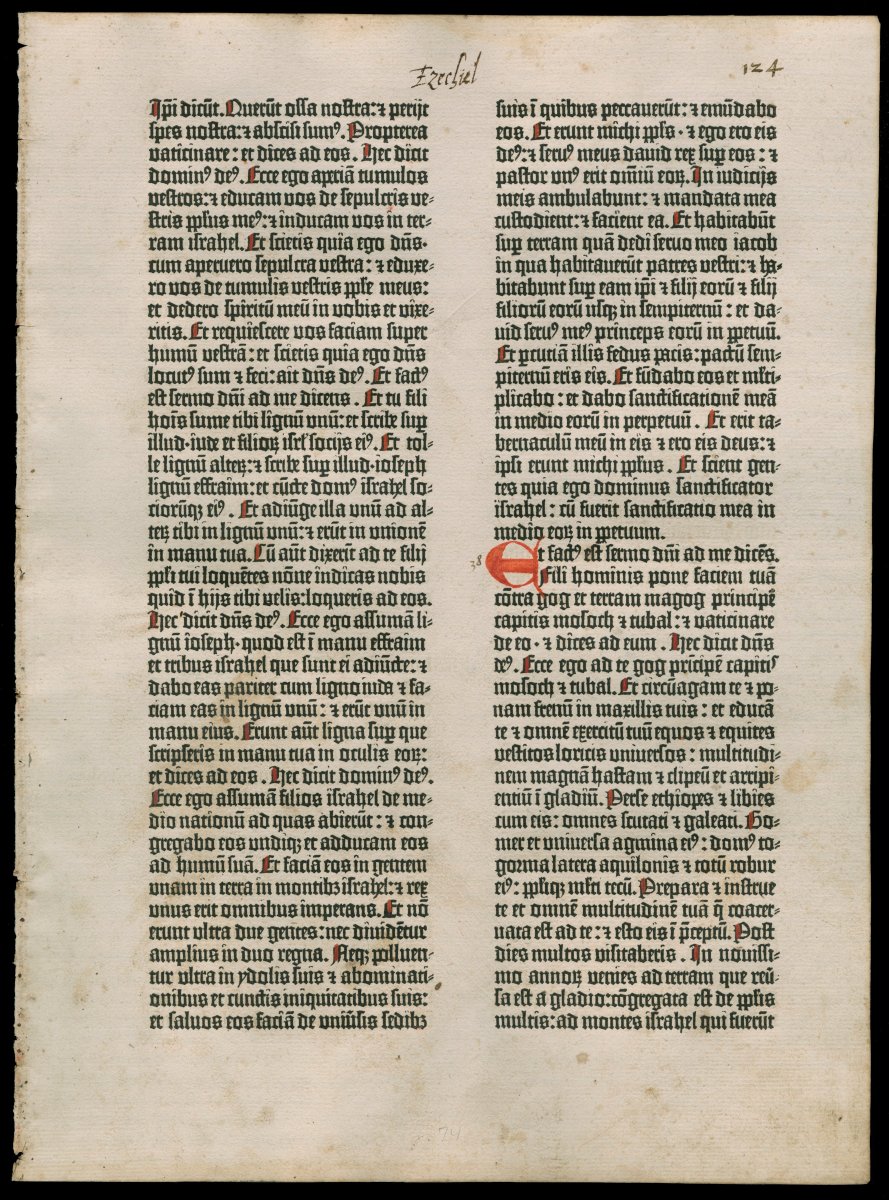 Ezechiel
124
Ip̄i dicūt. Querūt ossa nostra: ⁊ perijt
spes nostra: ⁊ abscisi sumꝰ. Propterea
vaticinare: et dīces ad eos. Hec dicit
dominꝰ deꝰ. Ecce ego aperiā tumulos
vestros: ⁊ educam vos de sepulcris ve-
stris pp̄lus meꝰ: ⁊ inducam vos in ter-
ram israhel. Et scietis quia ego dn̄s·
cum aperuero sepulcra vestra: ⁊ eduxe-
ro vos de tumulis vestris pp̄le meus:
et dedero spiritū meū in vobis et vixe-
ritis. Et requiescere vos faciam super
humū vestrā: et scietis quia ego dn̄s
locutꝰ sum ⁊ feci: ait dn̄s deꝰ. Et factꝰ
est sermo dn̄i ad me dicens. Et tu fili
hoīs sume tibi lignū vnū: et scribe sup̄
illud·iude et filioꝝ isrl̄ socijs eiꝰ. Et tol-
le lignū alteꝝ: ⁊ scribe sup̄ illud·ioseph
lignū effraim: et cūcte domꝰ israhel so-
ciorūqꝫ eiꝰ. Et adiūge illa vnū ad al-
teꝝ tibi in lignū vnū: ⁊ erūt in vnionē
in manu tua. Cū aūt dixerīt ad te filij
pp̄li tui loquētes nōne indicas nobis
quid ī hijs tibi velis: loqueris ad eos.
Hec dicit dn̄s deꝰ. Ecce ego assumā li-
gnū ioseph·quod est ī manu effraim
et tribus israhel que sunt ei adiūcte: ⁊
dabo eas pariter cum ligno iuda ⁊ fa-
ciam eas in lignū vnū: ⁊ erūt vnū in
manu eius. Erunt aūt ligna sup̄ que
scripseris in manu tua in oculis eoꝝ:
et dices ad eos. Hec dicit dominꝰ deꝰ.
Ecce ego assumā filios israhel de me-
dio nationū ad quas abierūt: ⁊ con-
gregabo eos vndiqꝫ et adducam eos
ad humū suā. Et faciā eos in gentem
vnam in terra in montibꝫ israhel: ⁊ rex
vnus erit omnibus imperans. Et nō
erunt vltra due gentes: nec diuidētur
amplius in duo regna. Neqꝫ polluen-
tur vltra in ydolis suis ⁊ abominati-
onibus et cunctis iniquitatibus suis:
et saluos eos faciā de vniūsis sedibꝫ
suis ī quibus peccauerūt: ⁊ emūdabo
eos. Et erunt michi pp̄ls·⁊ ego ero eis
deꝰ: ⁊ seruꝰ meus dauid rex sup̄ eos: ⁊
pastor vnꝰ erit omīū eoꝝ. In iudicijs
meis ambulabunt: ⁊ mandata mea
custodient: ⁊ facient ea. Et habitabūt
sup̄ terram quā dedi seruo meo iacob
in qua habitauerūt patres vestri: ⁊ ha-
bitabunt sup̄ eam ip̄i ⁊ filij eorū ⁊ filij
filiorū eorū usqꝫ in sempiternū: et da-
uid seruꝰ meꝰ princeps eorū in ꝑpetuū.
Et ꝑcutiā illis fedus pacis: pactū sem-
piternū erit eis. Et fūdabo eos et ml̄ti-
plicabo: et dabo sanctificationē meā
in medio eorū in perpetuū. Et erit ta-
bernaculū meū in eis ⁊ ero eis deus: ⁊
ipsi erunt michi pp̄lus. Et scient gen-
tes quia ego dominus sanctificator
israhel: cū fuerit sanctificatio mea in
medio eoꝝ in ꝑpetuum.
38
Et factꝰ est sermo dn̄i ad me dicēs.
Fili hominis pone faciem tuā
cōtra gog et terram magog principē
capitis mosoch ⁊ tubal: ⁊ vaticinare
de eo·⁊ dices ad eum. Hec dicit dn̄s
deꝰ. Ecce ego ad te gog prīcipē capitis
mosoch ⁊ tubal. Et circūagam te ⁊ po-
nam frenū in maxillis tuis: et educā
te ⁊ omnē exercitū tuū equos ⁊ equites
vestitos loricis vniuersos: multitudi-
nem magnā hastam ⁊ clipeū et arripi-
entiū ī gladiū. Perse ethiopes ⁊ libies
cum eis: omnes scutati ⁊ galeati. Go-
mer et vniuersa agmina eiꝰ: domꝰ to-
gorma latera aquilonis ⁊ totū robur
eiꝰ: pp̄liqꝫ ml̄ti tecū. Prepara ⁊ instrue
te et omnē multitudinē tuā q̄ coacer-
uata est ad te: ⁊ esto eis ī p̄ceptū. Post
dies multos visitaberis. In nouissi-
mo annoꝝ venies ad terram que reū-
sa est a gladio: cōgregata est de pp̄lis
multis: ad montes israhel qui fuerūt
74